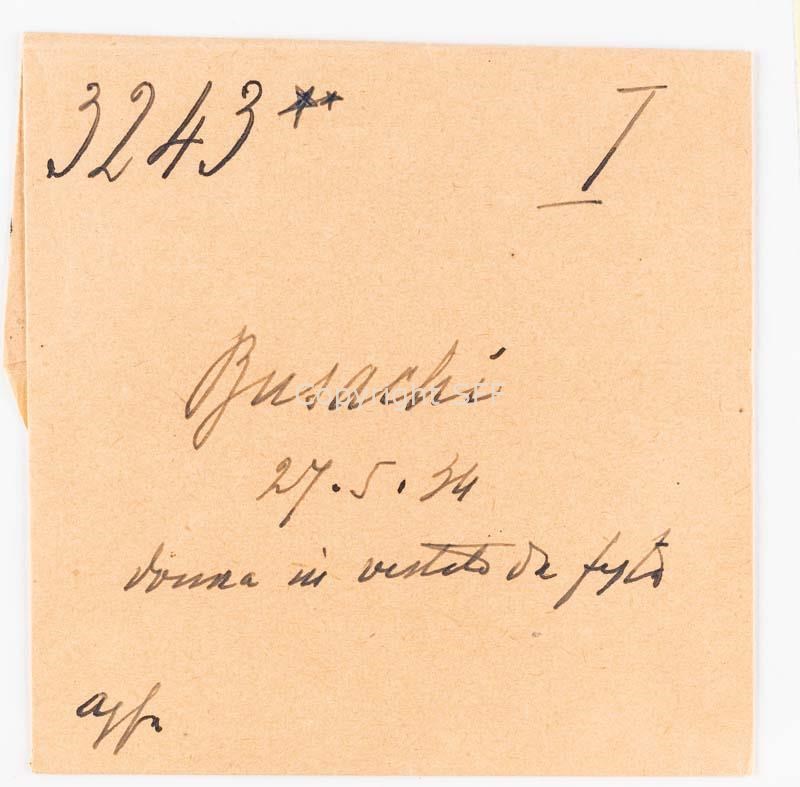 3243** I
Busachi
27.5.34
donna in vestito da festa
agfa
Copyright SFF